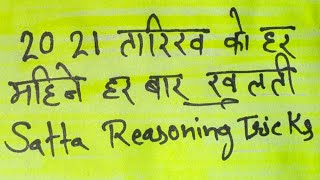 20 21 तारिख को हर
महिने हर बार खुलती
Satta Reasoning Tricks